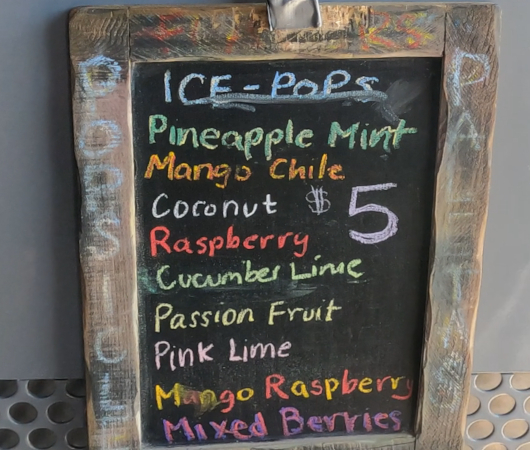 ICE-POPS
Pineapple Mint
Mango Chile
Coconut
$5
Raspberry
Cucumber Lime
Passion Fruit
Pink Lime
Mango Raspberry
Mixed Berries
POPSICLE